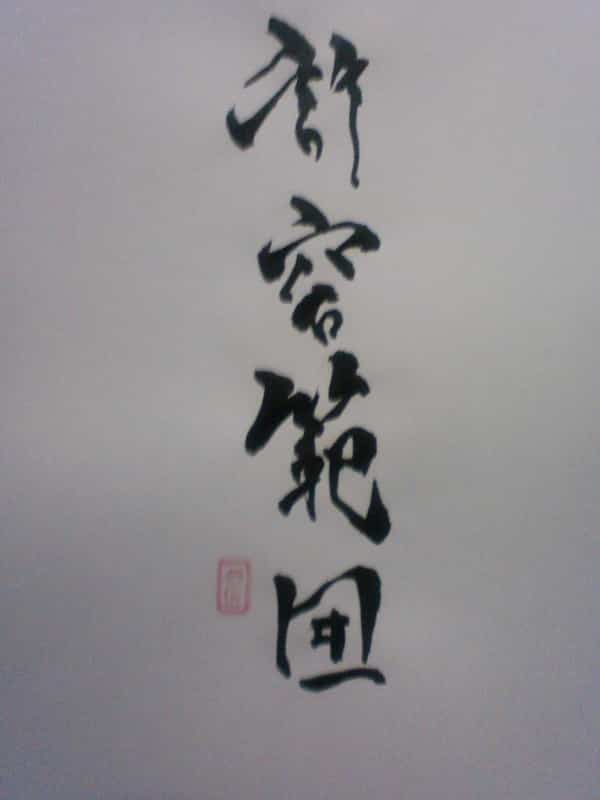 許容範囲